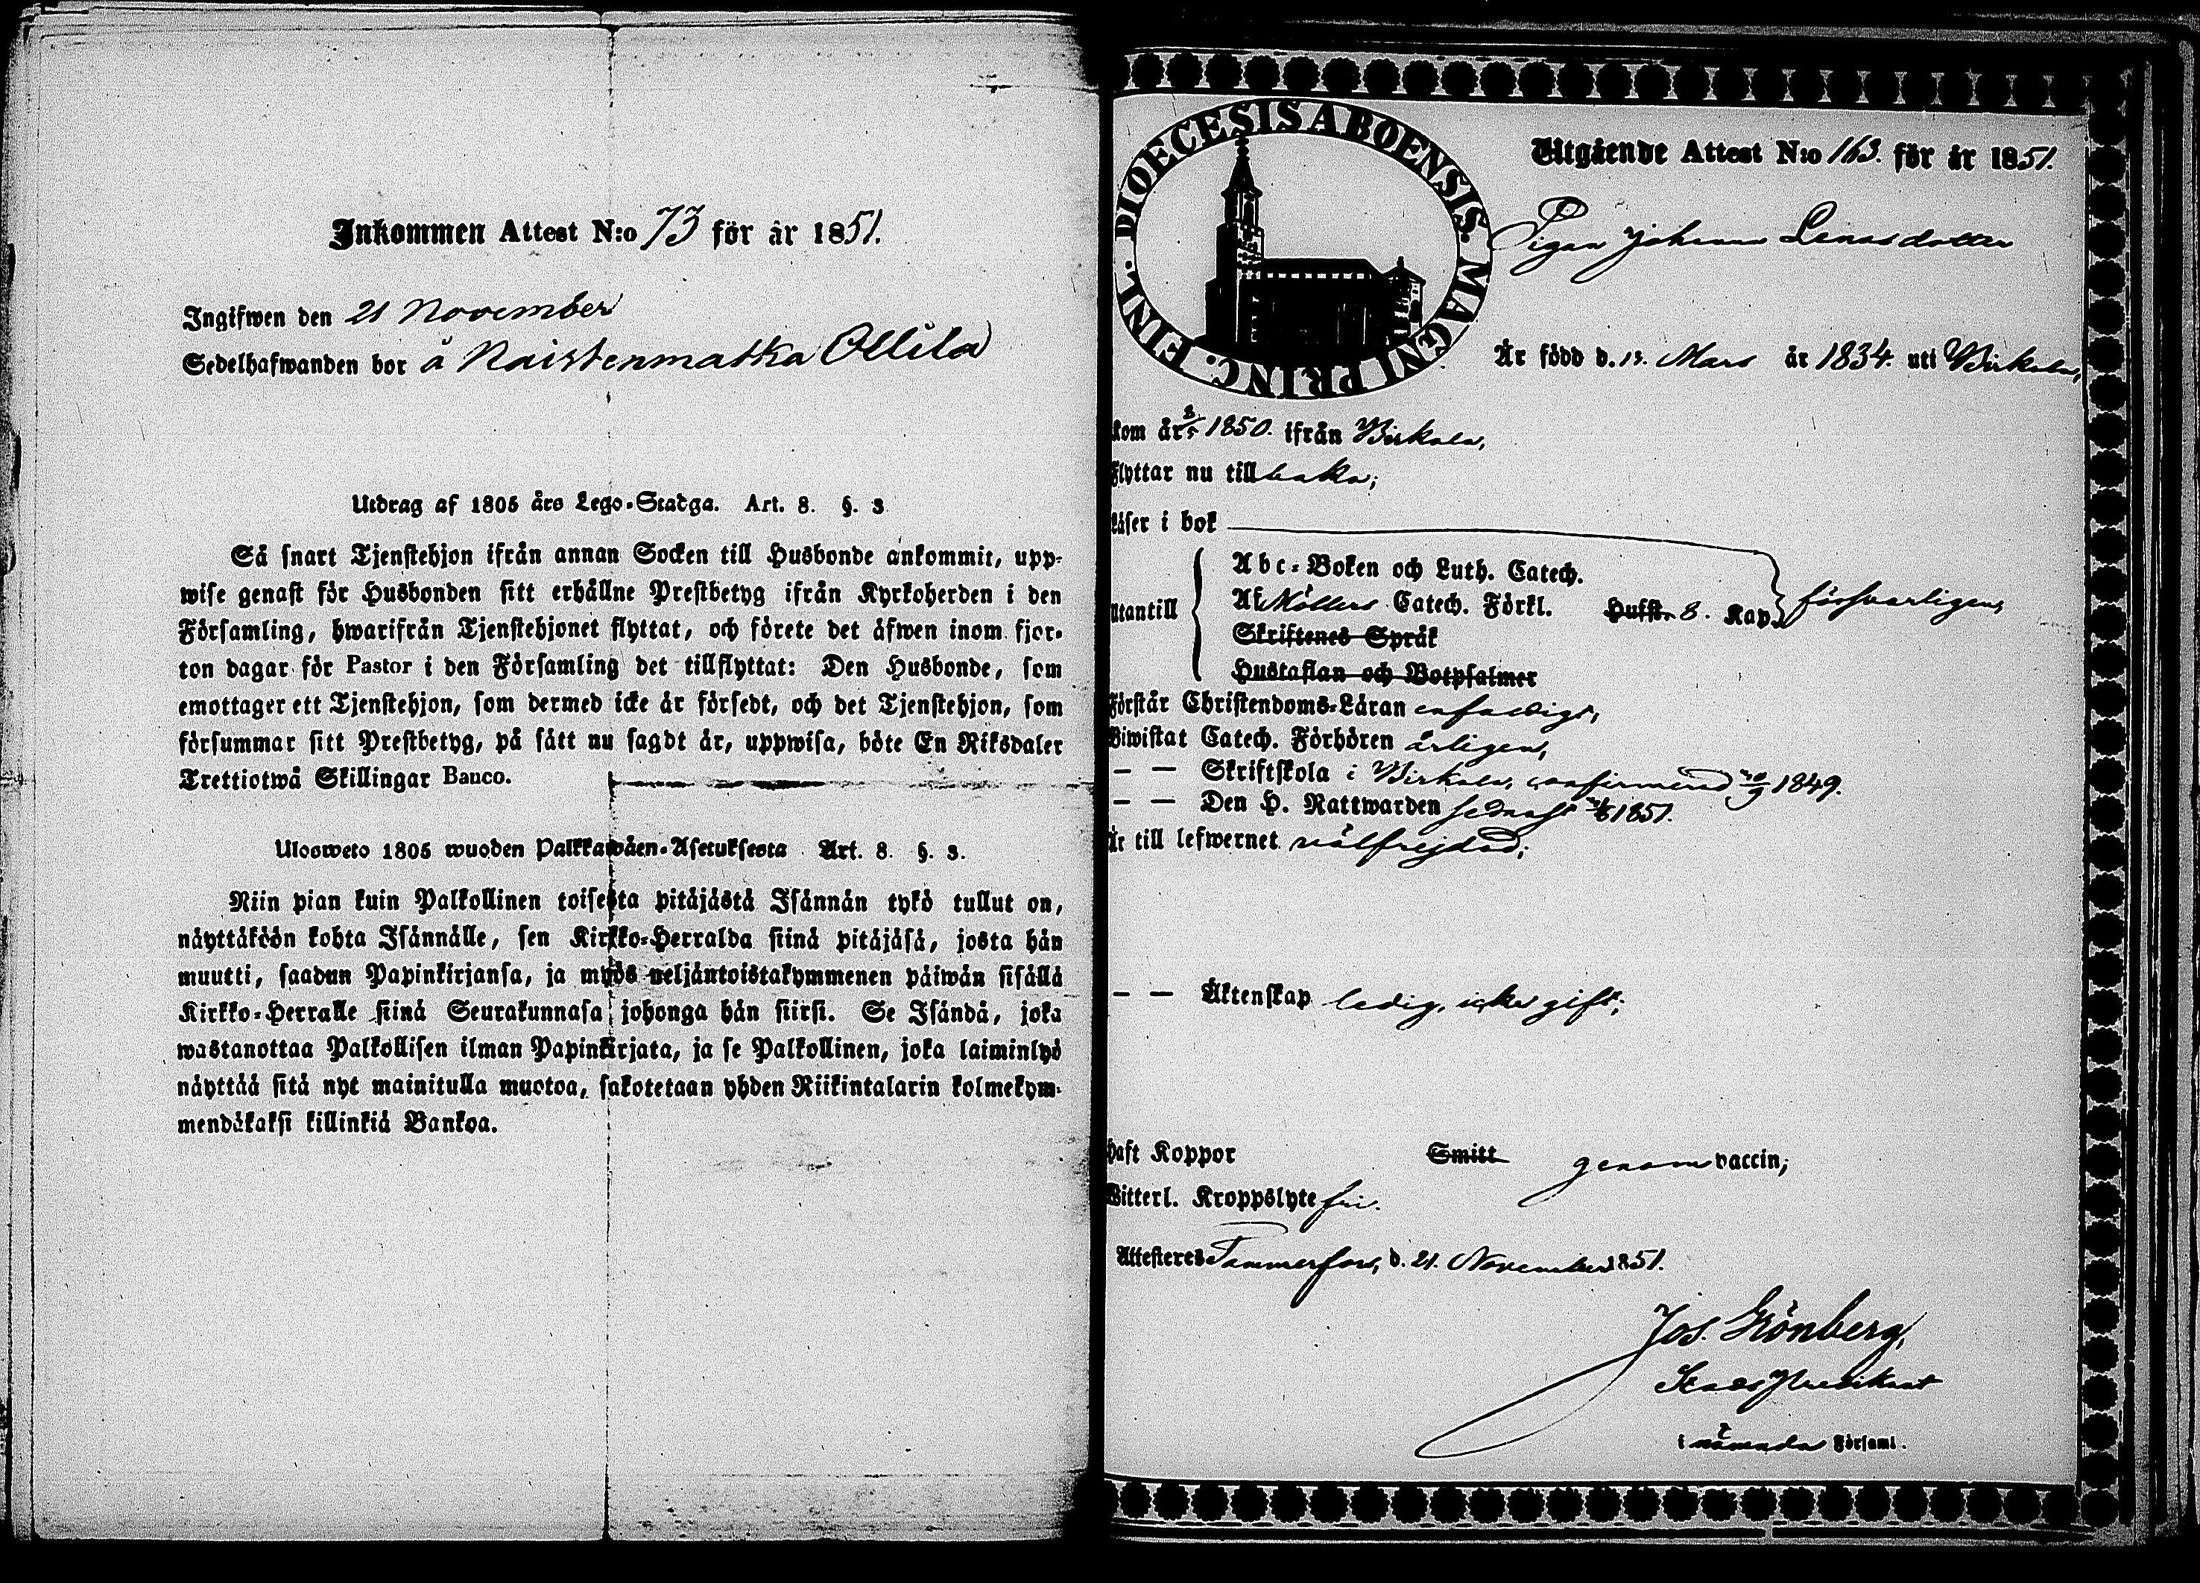 Inkommen Attest N:o 73 för år 1851.
Ingifwen den 21 November
Sedelhafwanden bor å Naistenmatka Ollila
Utdrag af 1805 års Lego-Stadga. Art. 8. §. 3
Så snart Tjenstehjon ifrån annan Socken till Husbonde ankommit, upp-
wise genast för Husbonden sitt erhållne Prestbetyg ifrån Kyrkoherden i den
Församling, hwarifrån Tjenstehjonet flyttat, och förete det äfwen inom fjor-
ton dagar för Pastor i den Församling det tillflyttat: Den Husbonde, som
emottager ett Tjenstehjon, som dermed icke är försedt, och det Tjenstehjon, som
försummar sitt Prestbetyg, på sätt nu sagdt är, uppwisa, böte En Riksdaler
Trettiotwå Skillingar Banco.
Ulosweto 1805 wuoden Palkkawäen-Asetuksesta Art. 8. §. 3.
Niin pian kuin Palkollinen toisesta pitäjästä Isännän tykö tullut on,
näyttäköön kohta Isännälle, sen Kirkko-Herralda siinä pitäjäsä, josta hän
muutti, saadun Papinkirjansa, ja myös neljäntoistakymmenen päiwän sisällä
Kirkko-Herralle siinä Seurakunnasa johonga hän siirsi. Se Isändä, joka
wastanottaa Palkollisen ilman Papinkirjata, ja se Palkollinen, joka laiminlyö
näyttää sitä nyt mainitulla muotoa, sakotetaan yhden Riikintalarin kolmekym-
mendäkaksi killinkiä Bankoa.
DIOECESIS ABOENSIS. MAGNI PRINC. FINL.
Utgående Attest N:o 163. för år 1851.
Pigan Johanna Lenasdotter
Är född d. Mars år 1834. uti Birkala,
kom år 8/5 1850. ifrån Birkala,
Flyttar nu tillbaka;
Läser i bok
Utantill
Abc-Boken och Luth. Catech.
Af Möllers Catech. Förkl. Hufst. 8. Kap. försvarligen,
Skriftenes Språk
Hustaflan och Botpsalmer
Förstår Christendoms-Läran enfaldigt,
Biwistat Catech. Förhören årligen,
— — Skriftskola i Birkala, confirmerad 1849.
— — Den H. Nattwarden sednast 1851.
Är till lefwernet välfrejdad;
— — Äktenskap ledig, icke gift;
Haft Koppor Smitt genom vaccin;
Witterl. Kroppslyte fri.
Attesteres Tammerfors, d. 21. November 1851.
Jos. Grönberg,
Stads Predikant
i nämnda Församl.